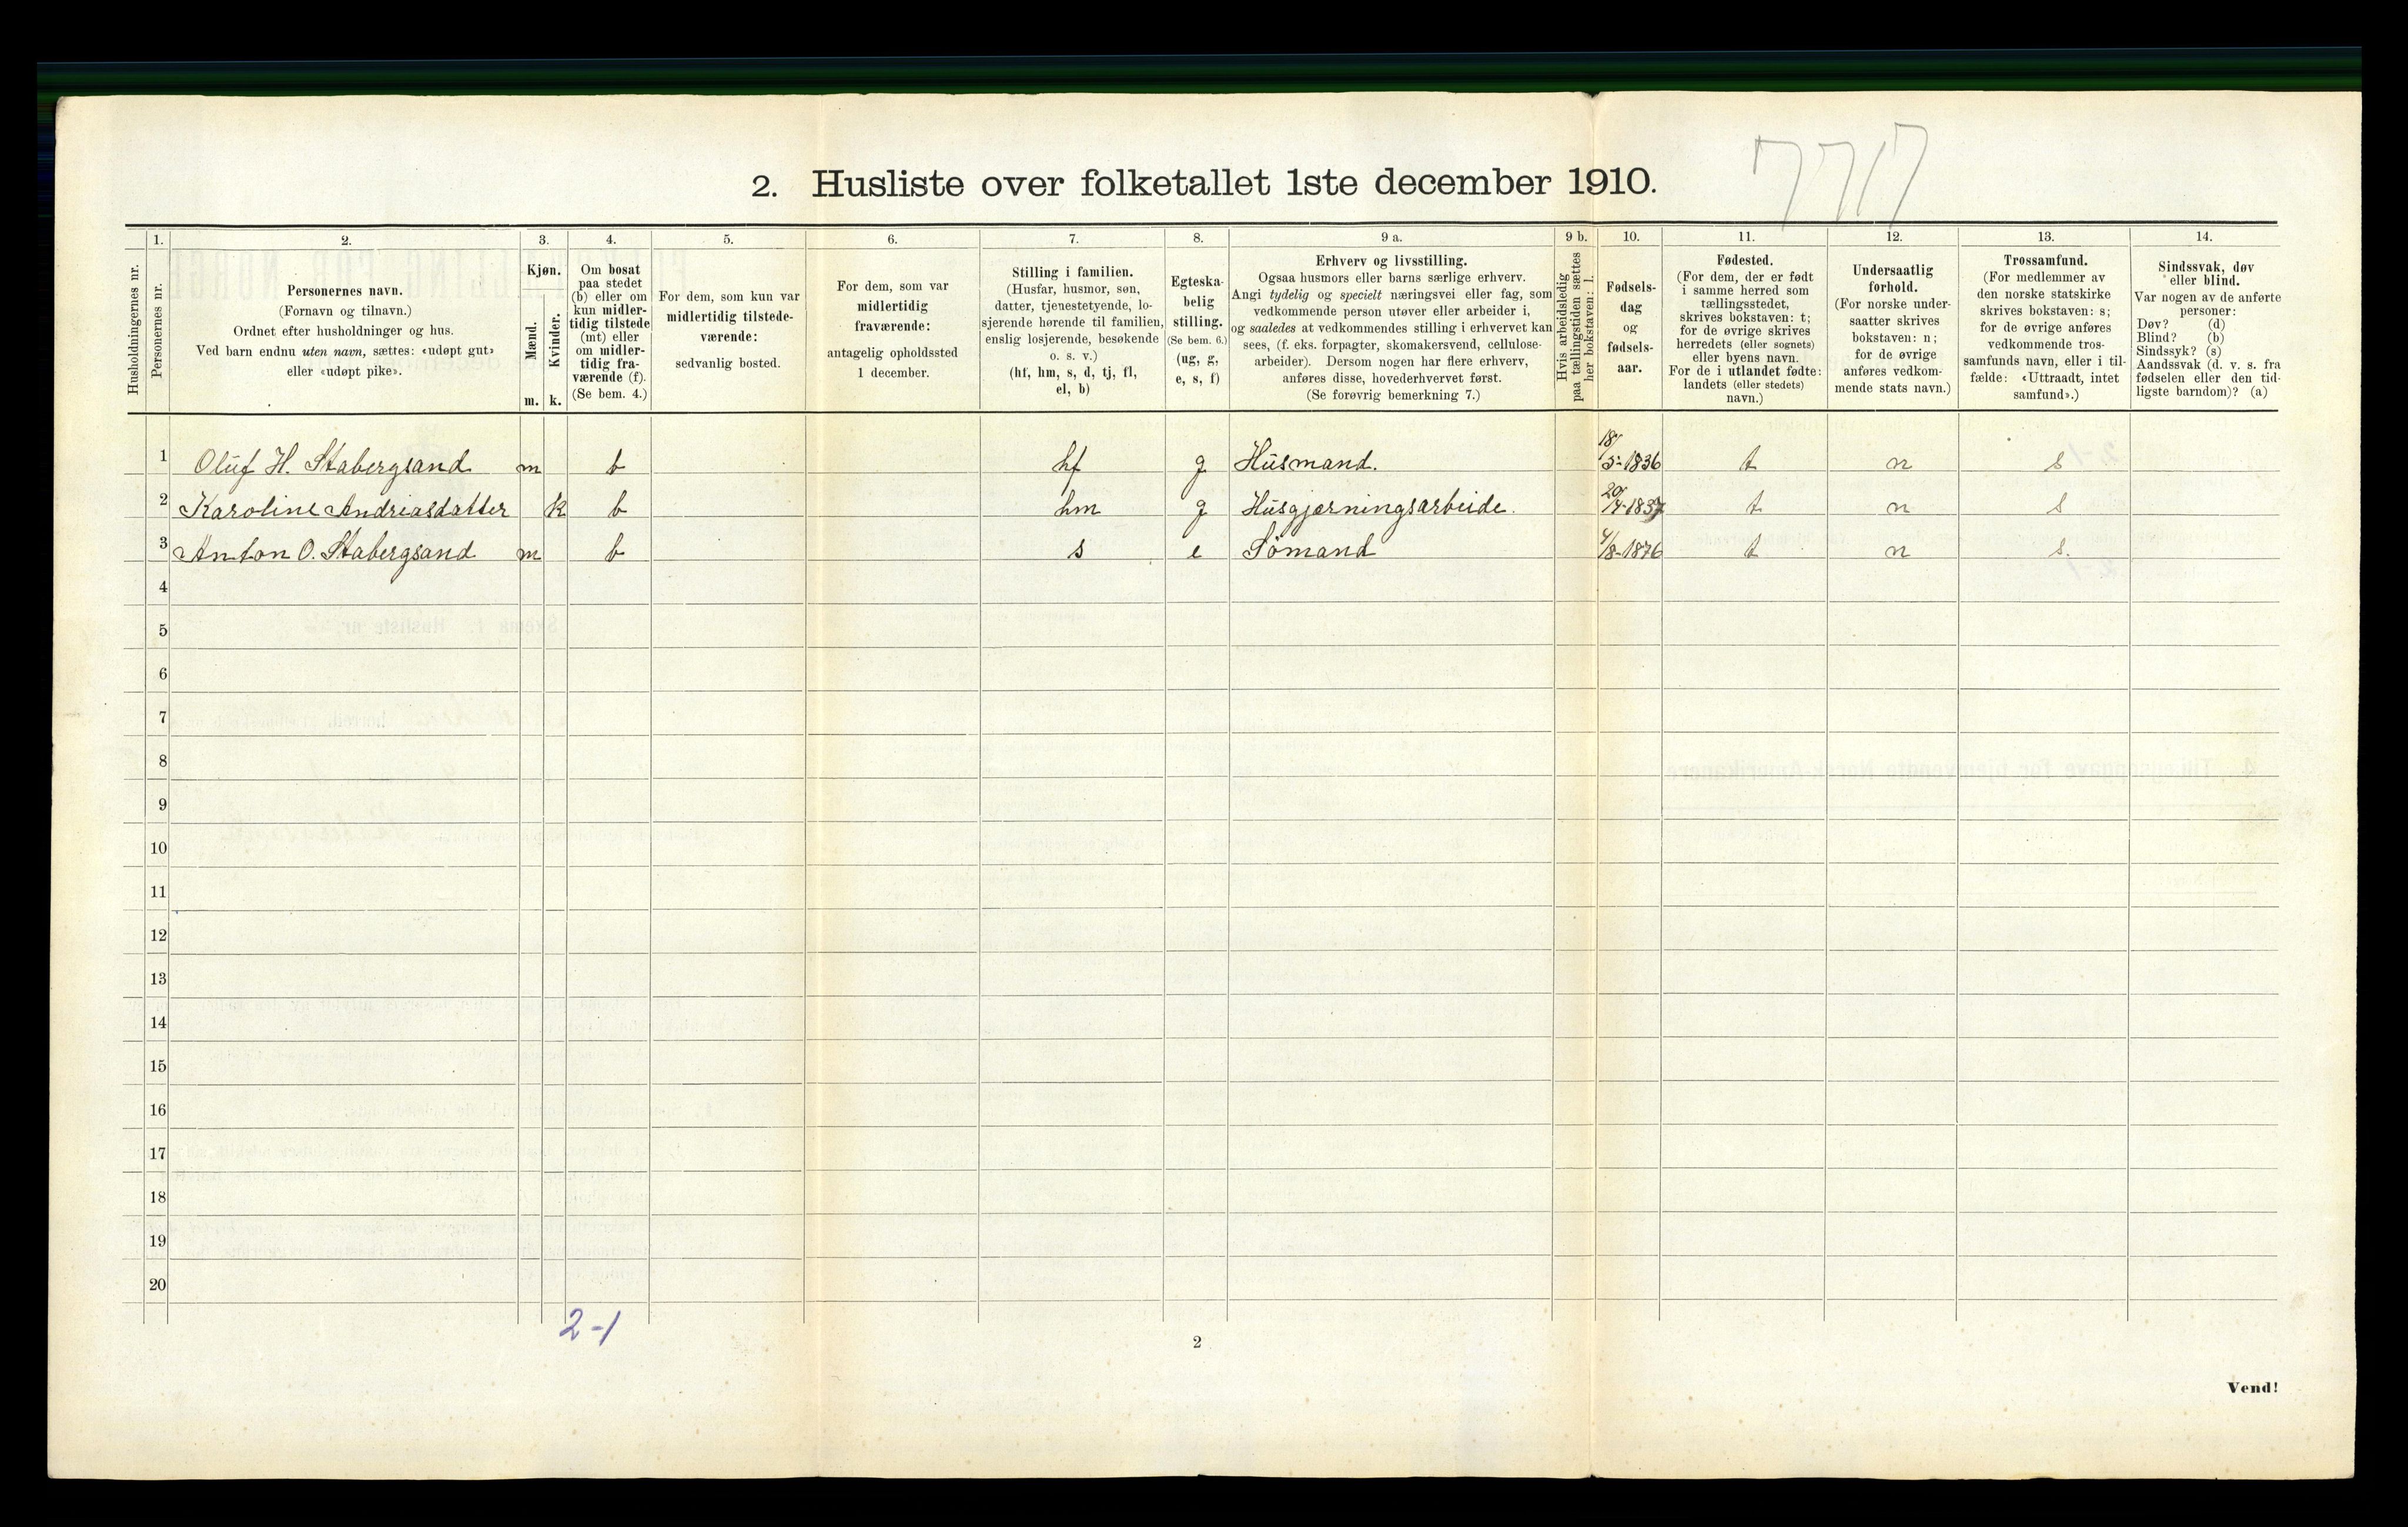 2. Husliste over folketallet 1ste december 1910.
1. 2. 3. 4. 5. 6. 7. 8. 9 a. 9 b. 10. 11. 12. 13. 14.
Husholdningernes nr.
Personernes nr.
Personernes navn.
(Fornavn og tilnavn.)
Ordnet efter husholdninger og hus.
Ved barn endnu uten navn, sættes: «udøpt gut»
eller «udøpt pike».
Kjøn.
Mænd.
Kvinder.
m. k.
Om bosat
paa stedet
(b) eller om
kun midler-
tidig tilstede
(mt) eller
om midler-
tidig fra-
værende (f).
(Se bem. 4.)
For dem, som kun var
midlertidig tilstede-
værende:
sedvanlig bosted.
For dem, som var
midlertidig
fraværende:
antagelig opholdssted
1 december.
Stilling i familien.
(Husfar, husmor, søn,
datter, tjenestetyende, lo-
sjerende hørende til familien,
enslig losjerende, besøkende
o. s. v.)
(hf, hm, s, d, tj, fl,
el, b)
Egteska-
belig
stilling.
(Se bem. 6.)
(ug, g,
e, s, f)
Erhverv og livsstilling.
Ogsaa husmors eller barns særlige erhverv.
Angi tydelig og specielt næringsvei eller fag, som
vedkommende person utøver eller arbeider i,
og saaledes at vedkommendes stilling i erhvervet kan
sees, (f. eks. forpagter, skomakersvend, cellulose-
arbeider). Dersom nogen har flere erhverv,
anføres disse, hovederhvervet først.
(Se forøvrig bemerkning 7.)
Hvis arbeidsledig
paa tællingstiden sættes
her bokstaven: l.
Fødsels-
dag
og
fødsels-
aar.
Fødested.
(For dem, der er født
i samme herred som
tællingsstedet,
skrives bokstaven: t;
for de øvrige skrives
herredets (eller sognets)
eller byens navn.
For de i utlandet fødte:
landets (eller stedets)
navn.)
Undersaatlig
forhold.
(For norske under-
saatter skrives
bokstaven: n;
for de øvrige
anføres vedkom-
mende stats navn.)
Trossamfund.
(For medlemmer av
den norske statskirke
skrives bokstaven: s;
for de øvrige anføres
vedkommende tros-
samfunds navn, eller i til-
fælde: «Uttraadt, intet
samfund».)
Sindssvak, døv
eller blind.
Var nogen av de anførte
personer:
Døv? (d)
Blind? (b)
Sindssyk? (s)
Aandssvak (d. v. s. fra
fødselen eller den tid-
ligste barndom)? (a)
1 Oluf H. Stabergsand m b hf g Husmand. 18/5-1836 t n s
2 Karoline Andreasdatter k b hm g Husgjærningsarbeide. 20/4-1837 t n s
3 Anton O. Stabergsand m b s e Sömand 4/8-1876 t n s.
4
5
6
7
8
9
10
11
12
13
14
15
16
17
18
19
20
2-1
2
Vend!